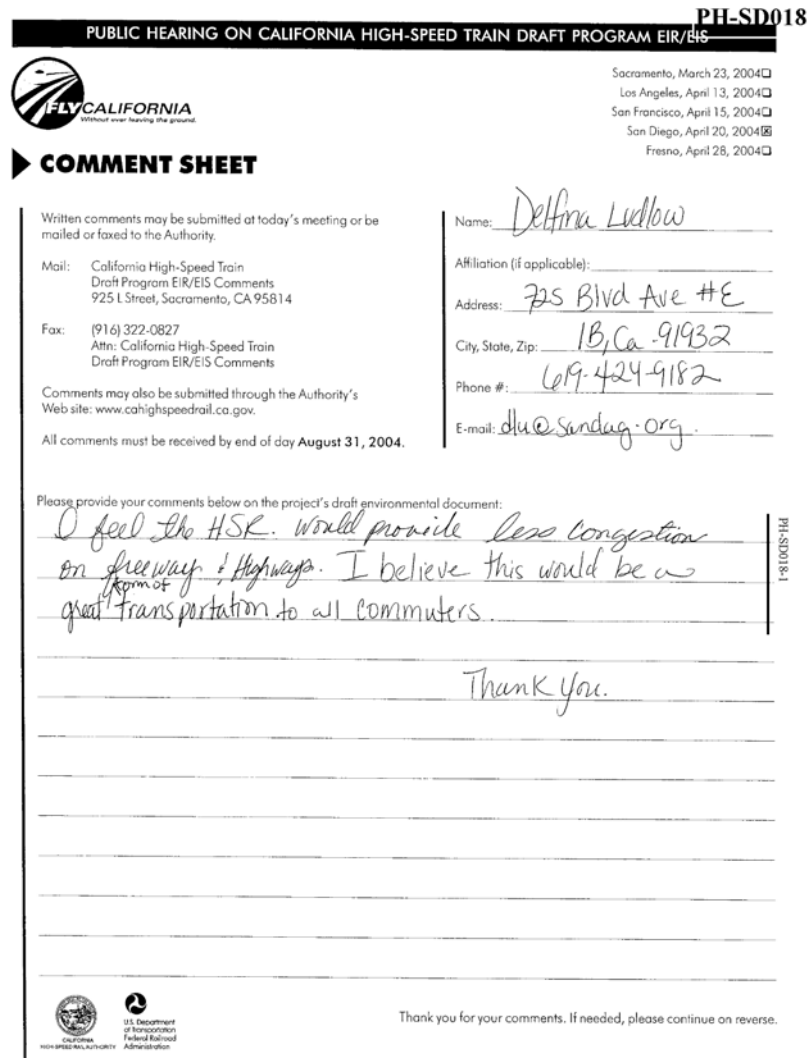 PH-SD018
PUBLIC HEARING ON CALIFORNIA HIGH-SPEED TRAIN DRAFT PROGRAM EIR/EIS
FLY CALIFORNIA
Without ever leaving the ground.
Sacramento, March 23, 2004☐
Los Angeles, April 13, 2004☐
San Francisco, April 15, 2004☐
San Diego, April 20, 2004☒
Fresno, April 28, 2004☐
COMMENT SHEET
Written comments may be submitted at today's meeting or be
mailed or faxed to the Authority.
Mail: California High-Speed Train
Draft Program EIR/EIS Comments
925 L Street, Sacramento, CA 95814
Fax: (916) 322-0827
Attn: California High-Speed Train
Draft Program EIR/EIS Comments
Comments may also be submitted through the Authority's
Web site: www.cahighspeedrail.ca.gov.
All comments must be received by end of day August 31, 2004.
Name: Delfina Ludlow
Affiliation (if applicable):
Address: 725 Blvd Ave #E
City, State, Zip: IB, Ca. 91932
Phone #: 619-424-9182
E-mail: dlu@sandag.org.
Please provide your comments below on the project's draft environmental document:
I feel the HSR. would provide less congestion
on freeway & Highways. I believe this would be a
form of
great transportation to all commuters.
Thank you.
PH-SD018-1
CALIFORNIA
HIGH SPEED RAIL AUTHORITY
U.S. Department
of Transportation
Federal Railroad
Administration
Thank you for your comments. If needed, please continue on reverse.